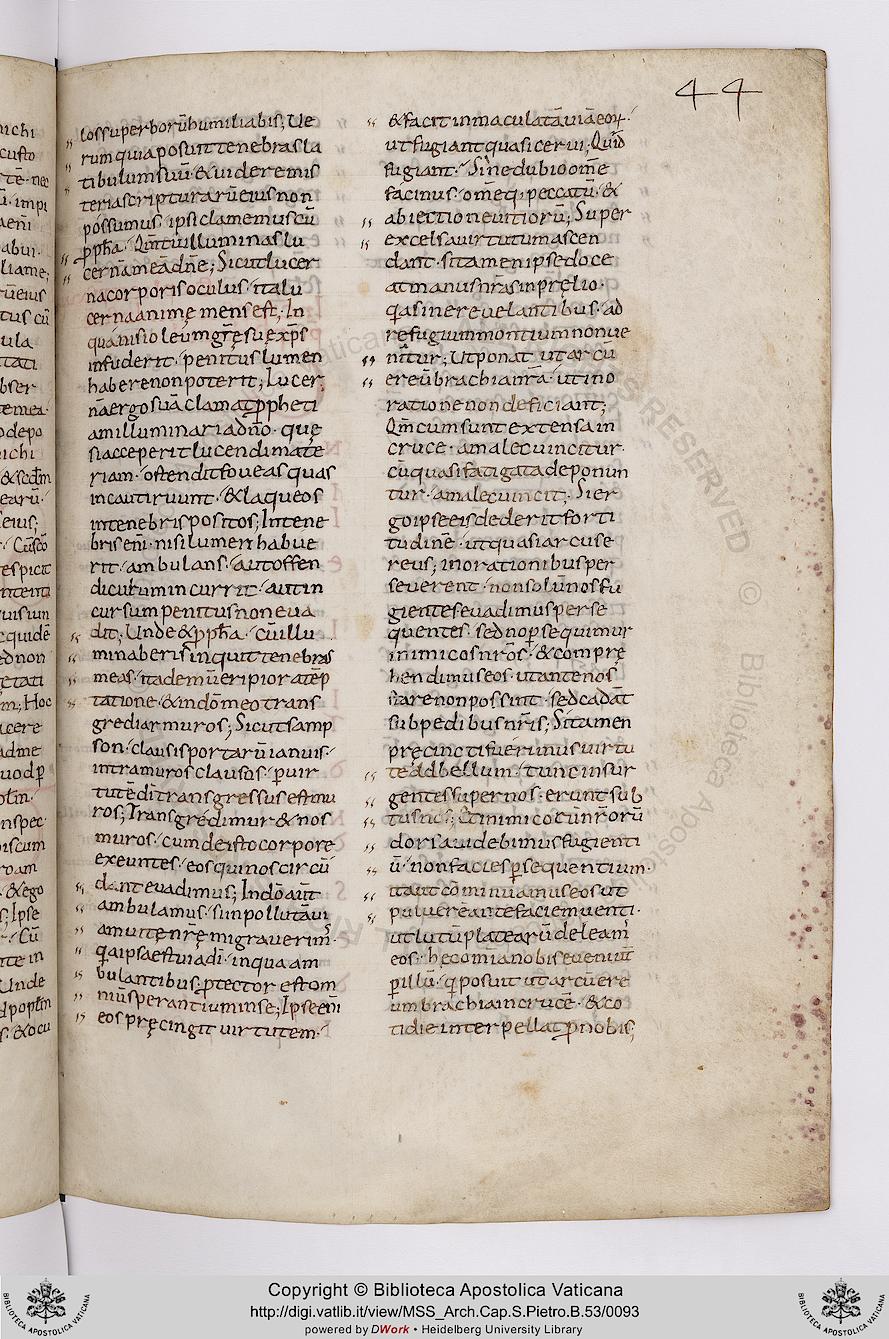 44
los superborū humiliabis; Ue
rum quia posuit tenebras la
tibulum suū · & uidere mis
teria scripturarū eius non
possumus · ipsi clamemus cū
ꝓph̄a · Qm̄ tu illuminas lu
cernam meā dn̄e; Sicut lucer
na corporis oculus · ita lu
cerna anime mens est; In
quā nisi oleū gr̄e suę xp̄s
infuderit · penitus lumen
habere non poterit; Lucer
nā ergo suā clamat ꝓpheti
am illuminari a dn̄o · quę
si acceperit lucendi mate
riam · ostendit foueas quas
incauti ruunt · & laqueos
in tenebris positos; In tene
bris eni · nisi lumen habue
rit · ambulans · aut offen
diculum incurrit · aut in
cursum penitus non eua
dit; Unde & ꝓph̄a · cū illu
minaberis inquit tenebras
meas · ita demū eripior a tēp
tatione · & in dō meo trans
grediar muros; Sicut samp
son · clausis portarū ianuis ·
intra muros clausos · ꝑ uir
tutē dī transgressus est mu
ros; Transgredimur & nos
muros · cum de isto corpore
exeuntes · eos qui nos circū
dant euadimus; In dō aūt
ambulamus · si inpolluta ui
a mitenrę migrauerim ·
qa ipsa est uia dī · in qua am
bulantibus ꝓtector est om
niū sperantium in se; Ipse eni
eos pręcingit uirtutem ·
& facit inmaculatā uiā eorꝝ ·
ut fugiant quasi cerui; Quid
fugiant · Sine dubio om̄e
facinus · om̄eq; peccatū · &
abiectione uitiorū; Super
excelsa uirtutum ascen
dant · si tamen ipse doce
at manus nr̄as in prelio ·
qasi nereuelantibus · ad
refugium montium non ue
nitur; Ut ponat ut arcū
ereū brachia nr̄a · ut in o
ratione non deficiant;
Qm̄ cum sunt extensa in
cruce · amalec uincitur ·
cū quasi fatigata deponun
tur · amalec uincit; Si er
go ipse eis dederit forti
tudinē · ut quasi arcus e
reus; in orationibus per
seuerent · non solū nos fu
gientes euadimus perse
quentes · sed nos ꝑsequimur
inimicos nr̄os · & comprę
hendimus eos · ut ante nos
stare non possint · sed cadāt
sub pedibus nr̄is; Si tamen
pręcincti fuerimus uirtu
te ad bellum · tunc insur
gentes super nos · erunt sub
dorsa uidebimus fugienti
ū · non facies ꝑsequentium ·
ita ut cōminuamus eos ut
puluerē ante faciem uenti ·
ut lutū platearū deleam
eos · hec omnia nobis eueniūt
ꝑ illū · q posuit ut arcū ere
um brachia in crucē · & co
tidie interpellat ꝓ nobis;
Copyright © Biblioteca Apostolica Vaticana
http://digi.vatlib.it/view/MSS_Arch.Cap.S.Pietro.B.53/0093
powered by DWork • Heidelberg University Library